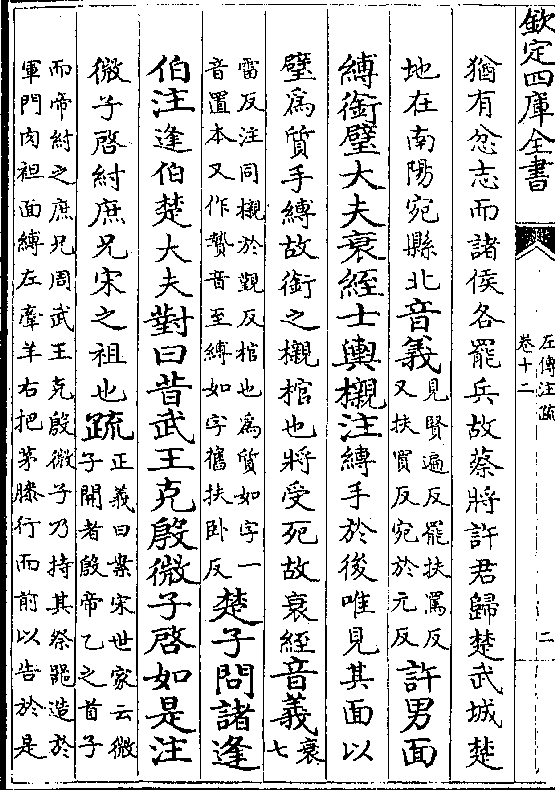 欽定四庫全書
左傳注疏
卷十二
二
猶有忿志而諸侯各罷兵故蔡將許君歸楚武城楚
地在南陽宛縣北音義
見賢遍反罷扶罵反
又扶買反宛於元反
許男面
縛銜璧大夫衰絰士輿櫬注縛手於後唯見其面以
璧為質手縛故銜之櫬棺也將受死故衰絰音義
衰
七
雷反注同櫬於覲反棺也為質如字一
音置本又作贄音至縛如字舊扶卧反
楚子問諸逢
伯注逢伯楚大夫對曰昔武王克殷微子啓如是注
微子啓紂庶兄宋之祖也疏
正義曰案宋世家云微
子開者殷帝乙之首子
而帝紂之庶兄周武王克殷微子乃持其祭器造於
軍門肉袒面縛左牽羊右把茅膝行而前以告於是